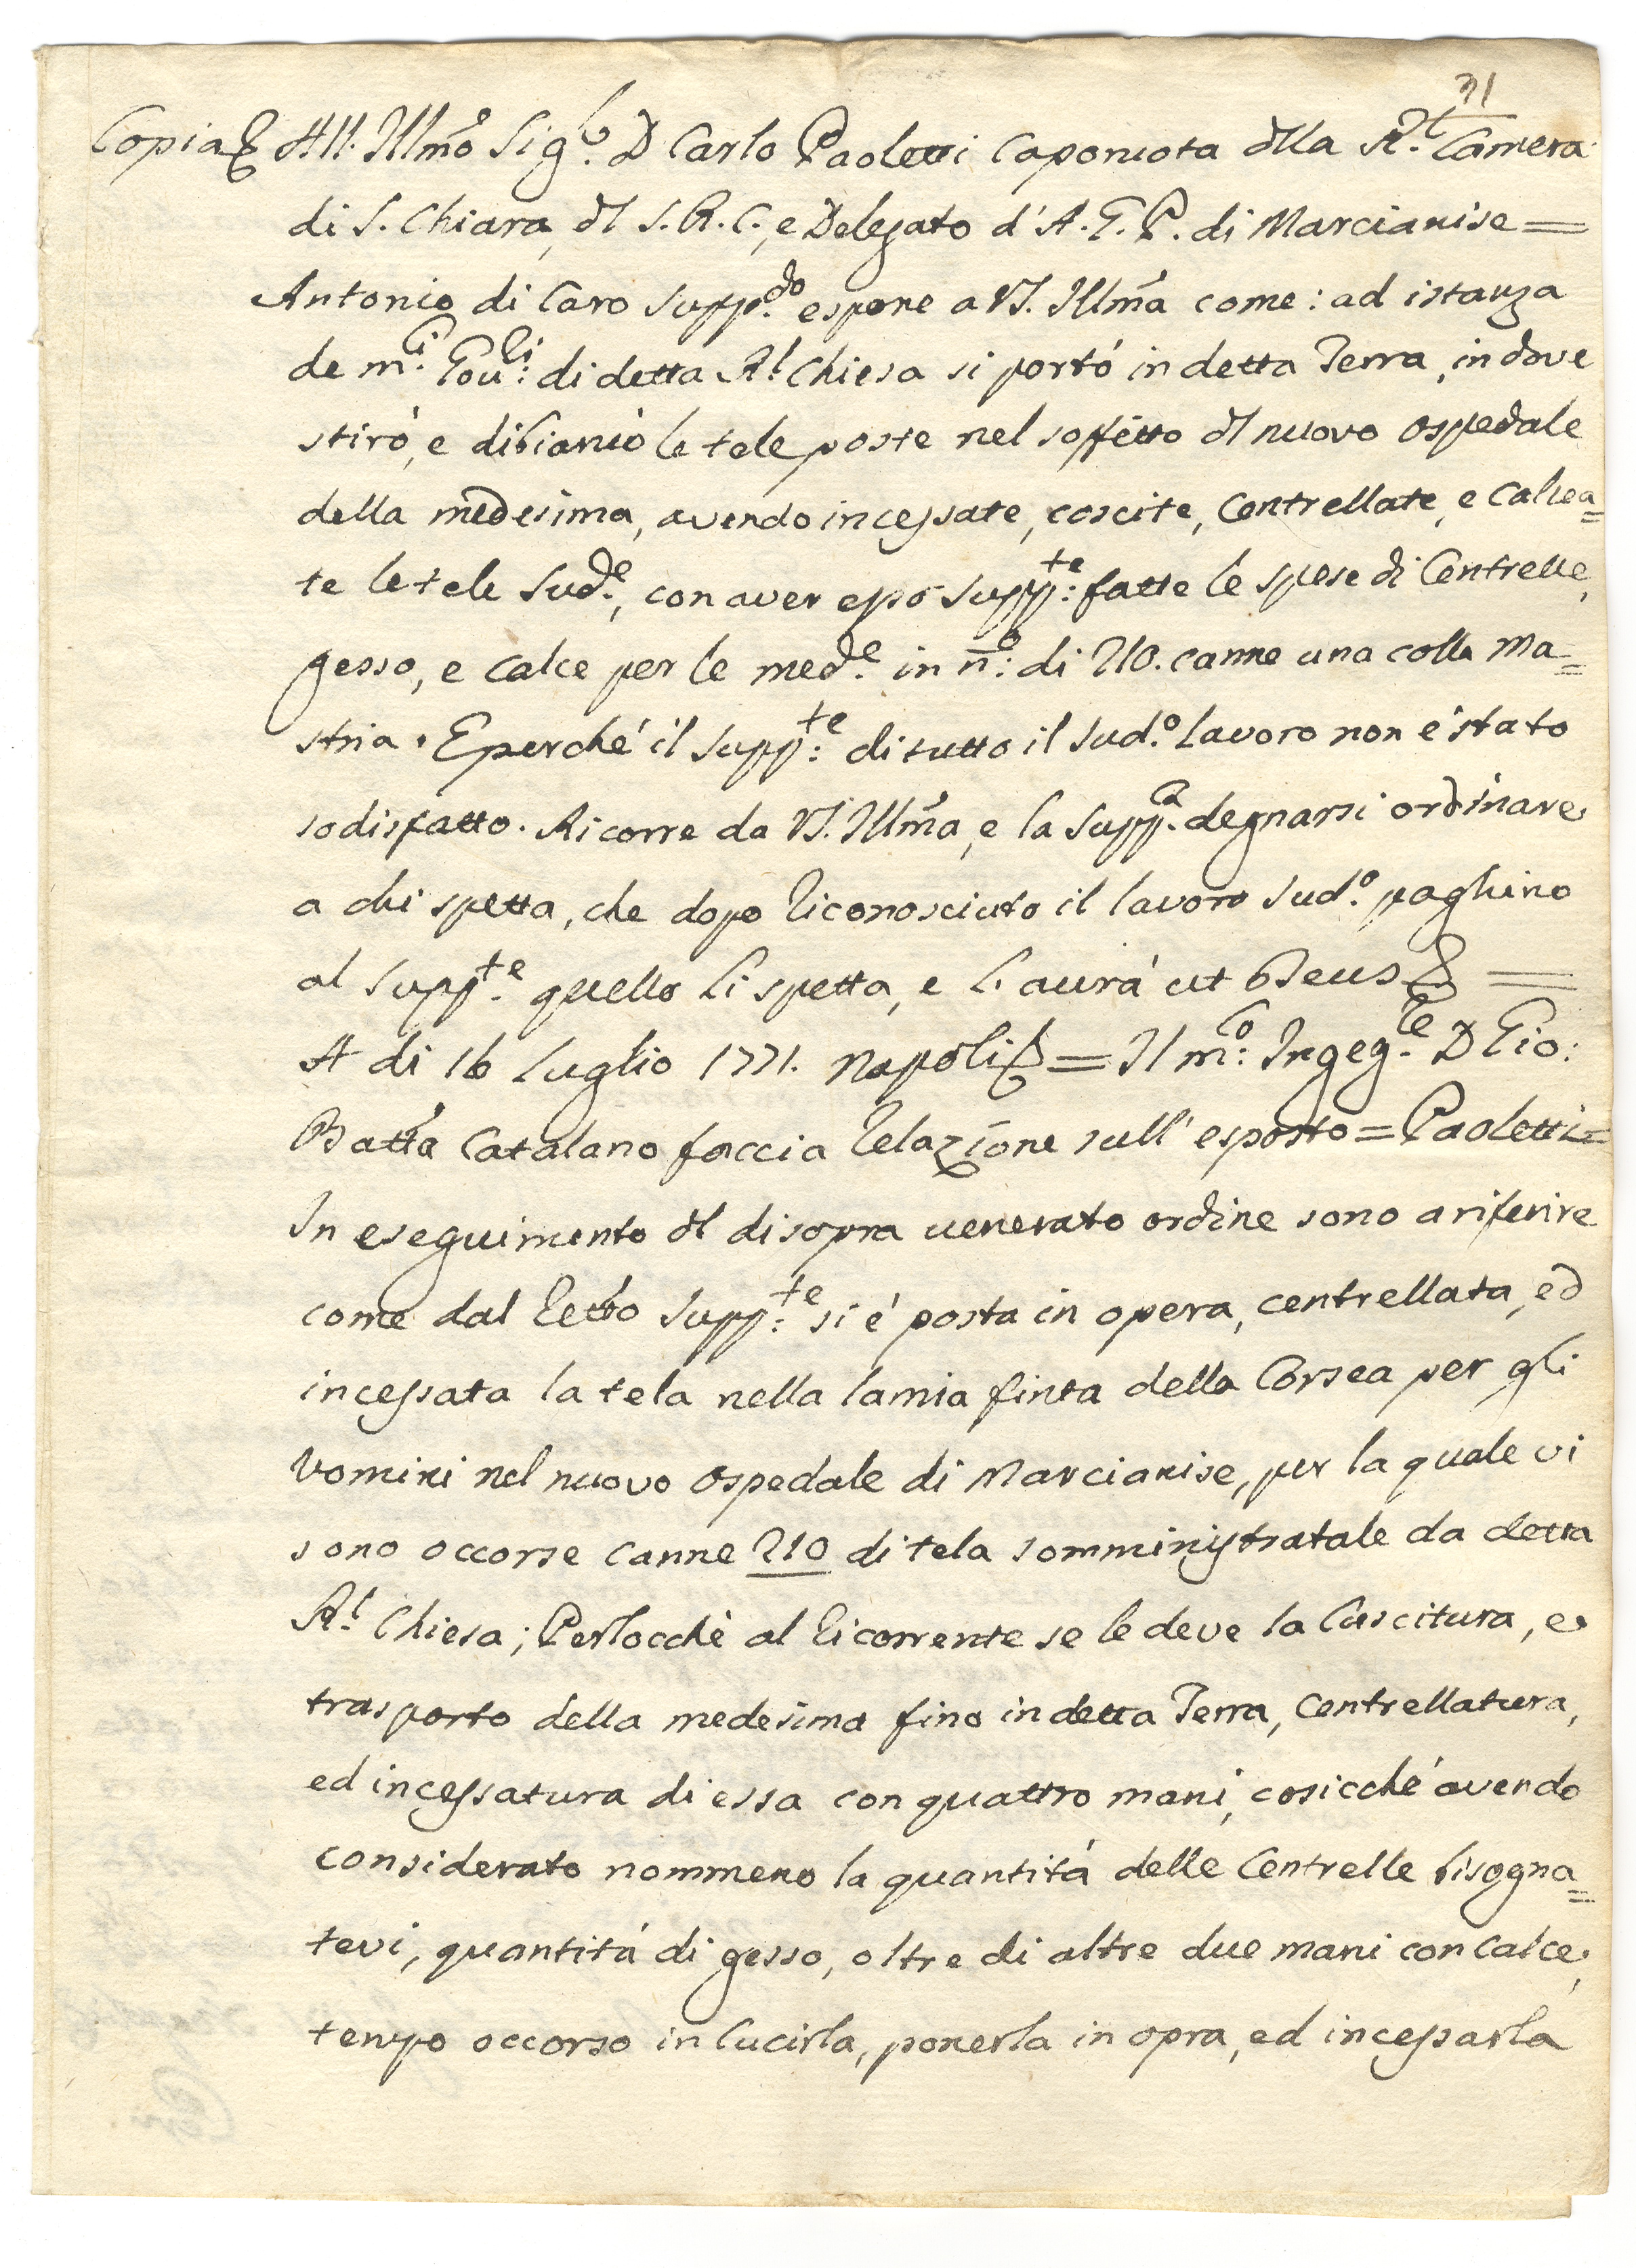 31
Copia & All' Illmo Sigre D Carlo Paoletti Caporuota dlla Rl Camera
di S. Chiara, dl S. R. C., e Delegato d' A. G. P. di Marcianise =
Antonio di Caro suppdo espone a VS. Illma come: ad istanza
de mci Govri: di detta Rl Chiesa si portò in detta Terra, in dove
stirò, e dibianciò le tele poste nel soffitto dl nuovo ospedale
della medesima, avendo incessate, coscite, Centrellate, e Calcea=
te le tele Sude, con aver esso suppte: fatte le spese di Centrelle,
gesso, e calce per le mede in no: di 210. canne una colla ma=
stria. E perché il suppte: di tutto il sudo lavoro non é stato
sodisfatto. Ricorre da VS. Illma, e la suppca degnarsi ordinare
a chi spetta, che dopo riconosciuto il lavoro Sudo. paghino
al suppte quello li spetta, e l'aurà ut Deus & =
A di 16 Luglio 1771. Napoli & = Il mco: Ingegre D Gio:
Batta Catalano faccia relazione sull' esposto = Paoletti =
In eseguimento dl disopra venerato ordine sono a riferire
come dal retto suppte: si é posta in opera, centrellata, ed
incessata la tela nella lamia finta della Corsea per gli
Uomini nel nuovo ospedale di Marcianise, per la quale vi
sono occorse canne 210 di tela somministratale da detta
Rl Chiesa; Perlocché al ricorrente se le deve la Cuscitura, e
trasporto della medesima fino in detta Terra, Centrellatura,
ed incessatura di essa con quattro mani, cosicché avendo
considerato nommeno la quantitá delle Centrelle bisogna=
tevi, quantitá di gesso, oltre di altre due mani con calce,
tempo occorso in cucirla, ponerla in opra, ed incessarla